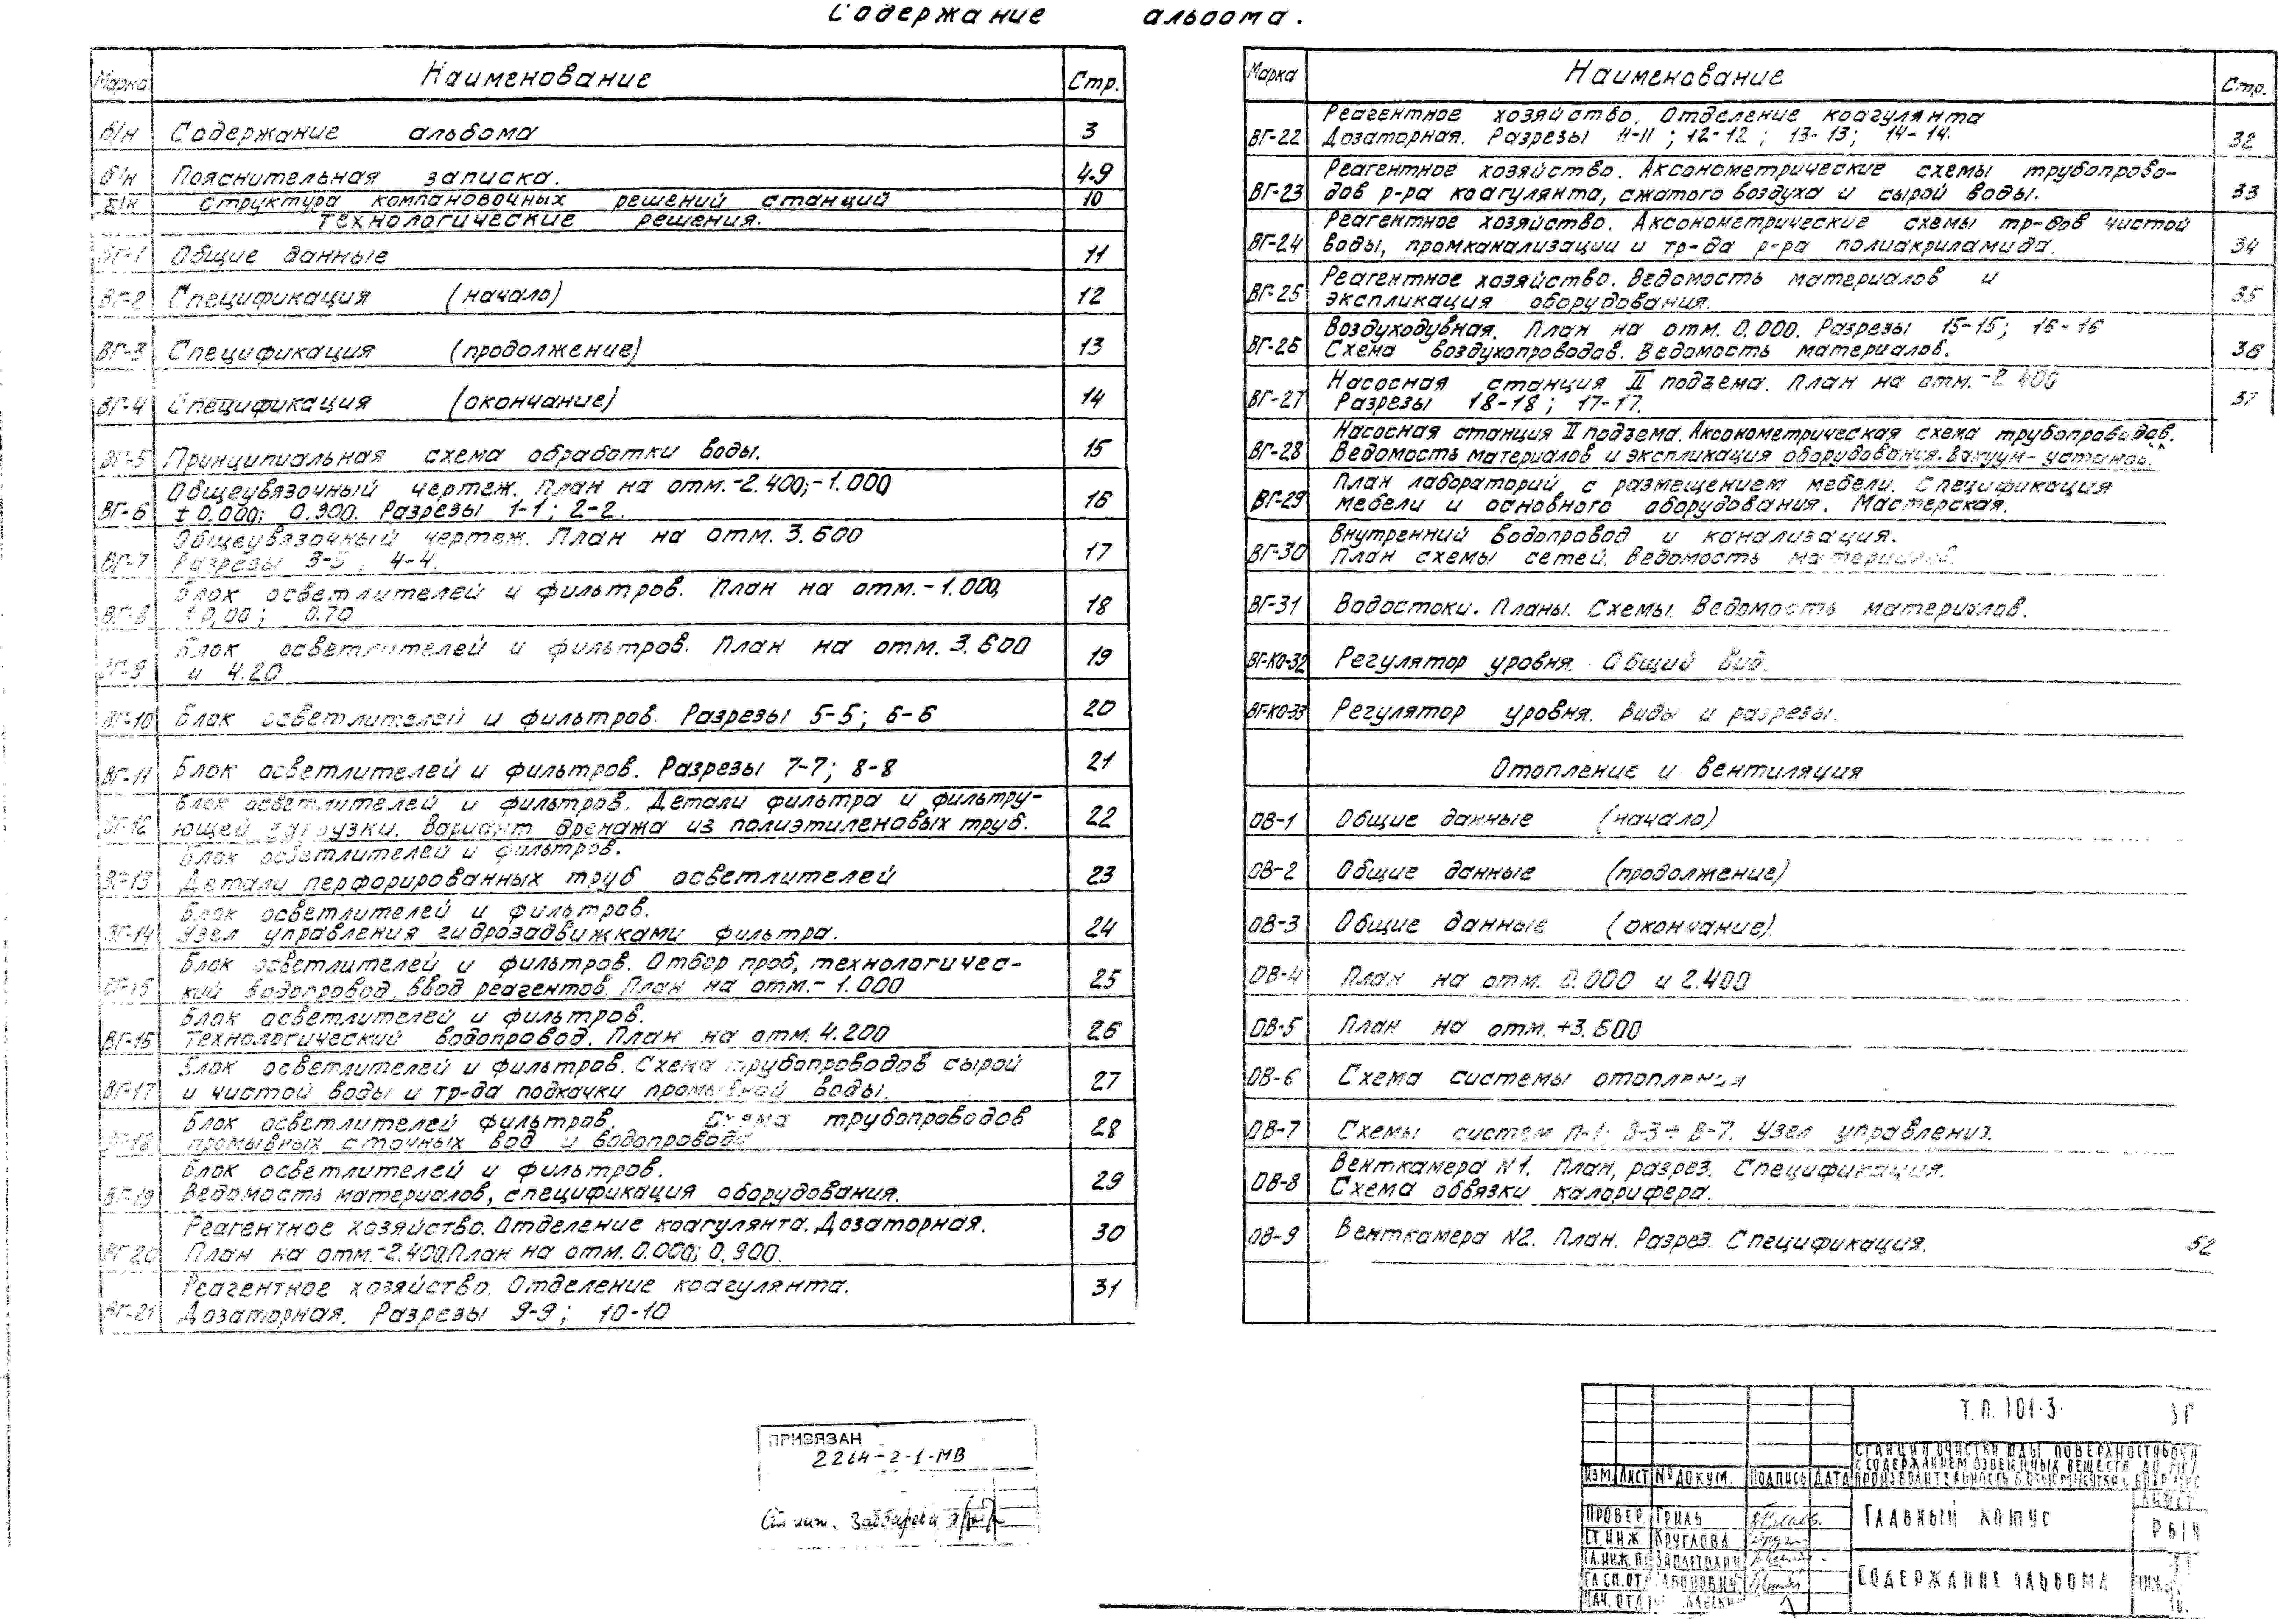 Содержание альбома.
Марка Наименование Стр.
б/н Содержание альбома 3
б/н Пояснительная записка. 4-9
б/н Структура компановочных решений станций 10
Технологические решения.
ВГ-1 Общие данные 11
ВГ-2 Спецификация (начало) 12
ВГ-3 Спецификация (продолжение) 13
ВГ-4 Спецификация (окончание) 14
ВГ-5 Принципиальная схема обработки воды. 15
Общеувязочный чертеж. План на отм.-2.400;-1.000
ВГ-6 ±0.000; 0.900. Разрезы 1-1; 2-2. 16
Общеувязочный чертеж. План на отм. 3.600
ВГ-7 Разрезы 3-3; 4-4. 17
Блок осветлителей и фильтров. План на отм.-1.000,
ВГ-8 ±0,00; 0.70 18
Блок осветлителей и фильтров. План на отм. 3.600
ВГ-9 и 4.20 19
ВГ-10 Блок осветлителей и фильтров. Разрезы 5-5; 6-6 20
ВГ-11 Блок осветлителей и фильтров. Разрезы 7-7; 8-8 21
Блок осветлителей и фильтров. Детали фильтра и фильтру-
ВГ-12 ющей загрузки. Вариант дренажа из полиэтиленовых труб. 22
Блок осветлителей и фильтров.
ВГ-13 Детали перфорированных труб осветлителей 23
Блок осветлителей и фильтров.
ВГ-14 Узел управления гидрозадвижками фильтра. 24
Блок осветлителей и фильтров. Отбор проб, технологичес-
ВГ-15 кий водопровод, ввод реагентов. План на отм.-1.000 25
Блок осветлителей и фильтров.
ВГ-16 Технологический водопровод. План на отм. 4.200 26
Блок осветлителей и фильтров. Схема трубопроводов сырой
ВГ-17 и чистой воды и тр-да подкачки промывной воды. 27
Блок осветлителей фильтров. Схема трубопроводов
ВГ-18 промывных сточных вод и водопровода 28
Блок осветлителей и фильтров.
ВГ-19 Ведомость материалов, спецификация оборудования. 29
Реагентное хозяйство. Отделение коагулянта. Дозаторная.
ВГ-20 План на отм.-2.400. План на отм. 0.000; 0.900. 30
Реагентное хозяйство. Отделение коагулянта.
ВГ-21 Дозаторная. Разрезы 9-9; 10-10 31
Марка Наименование Стр.
Реагентное хозяйство. Отделение коагулянта
ВГ-22 Дозаторная. Разрезы 11-11; 12-12; 13-13; 14-14. 32
Реагентное хозяйство. Аксонометрические схемы трубопрово-
ВГ-23 дов р-ра коагулянта, сжатого воздуха и сырой воды. 33
Реагентное хозяйство. Аксонометрические схемы тр-дов чистой
ВГ-24 воды, промканализации и тр-да р-ра полиакриламида. 34
Реагентное хозяйство. Ведомость материалов и
ВГ-25 экспликация оборудования. 35
Воздуходувная. План на отм. 0.000. Разрезы 15-15; 16-16
ВГ-26 Схема воздухопроводов. Ведомость материалов. 36
Насосная станция II подъема. План на отм.-2 400
ВГ-27 Разрезы 18-18; 17-17. 37
Насосная станция II подъема. Аксонометрическая схема трубопроводов.
ВГ-28 Ведомость материалов и экспликация оборудования. Вакуум-установ.
План лабораторий с размещением мебели. Спецификация
ВГ-29 мебели и основного оборудования. Мастерская.
Внутренний водопровод и канализация.
ВГ-30 План схемы сетей. Ведомость материалов.
ВГ-31 Водостоки. Планы. Схемы. Ведомость материалов.
ВГ-КО-32 Регулятор уровня. Общий вид.
ВГ-КО-33 Регулятор уровня. Виды и разрезы.
Отопление и вентиляция
ОВ-1 Общие данные (начало)
ОВ-2 Общие данные (продолжение)
ОВ-3 Общие данные (окончание).
ОВ-4 План на отм. 0.000 и 2.400
ОВ-5 План на отм. +3.600
ОВ-6 Схема системы отопления
ОВ-7 Схемы систем П-1; В-3÷В-7. Узел управления.
Венткамера N1. План, разрез. Спецификация.
ОВ-8 Схема обвязки калорифера.
ОВ-9 Венткамера N2. План. Разрез. Спецификация. 52
ПРИВЯЗАН
2264-2-1-МВ
Ст. инж.
Т.П. 101-3-
СТАНЦИЯ ОЧИСТКИ ВОДЫ ПОВЕРХНОСТНЫХ
С СОДЕРЖАНИЕМ ВЗВЕШЕННЫХ ВЕЩЕСТВ ДО
ИЗМ. ЛИСТ № ДОКУМ. ПОДПИСЬ ДАТА ПРОИЗВОДИТЕЛЬНОСТЬ
ПРОВЕР. ГРИЛЬ ГЛАВНЫЙ КОРПУС
СТ. ИНЖ КРУГЛОВА
ГЛ. ИНЖ. ПР
ГЛ СП. ОТД СОДЕРЖАНИЕ АЛЬБОМА
НАЧ. ОТД